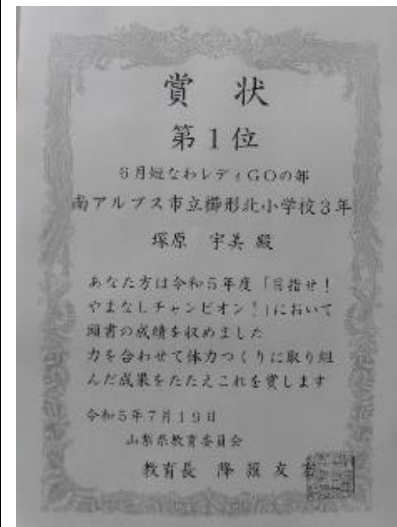 賞状
第1位
6月短なわレディGOの部
南アルプス市立櫛形北小学校3年
塚原 宇美 殿
あなた方は令和5年度「目指せ!
やまなしチャンピオン!」において
頭書の成績を収めました
力を合わせて体力つくりに取り組
んだ成果をたたえこれを賞します
令和5年7月19日
山梨県教育委員会
教育長 降籏友宏